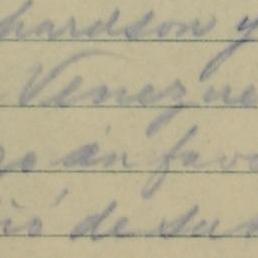 hardson y
Venezue
án favo
ió de sus